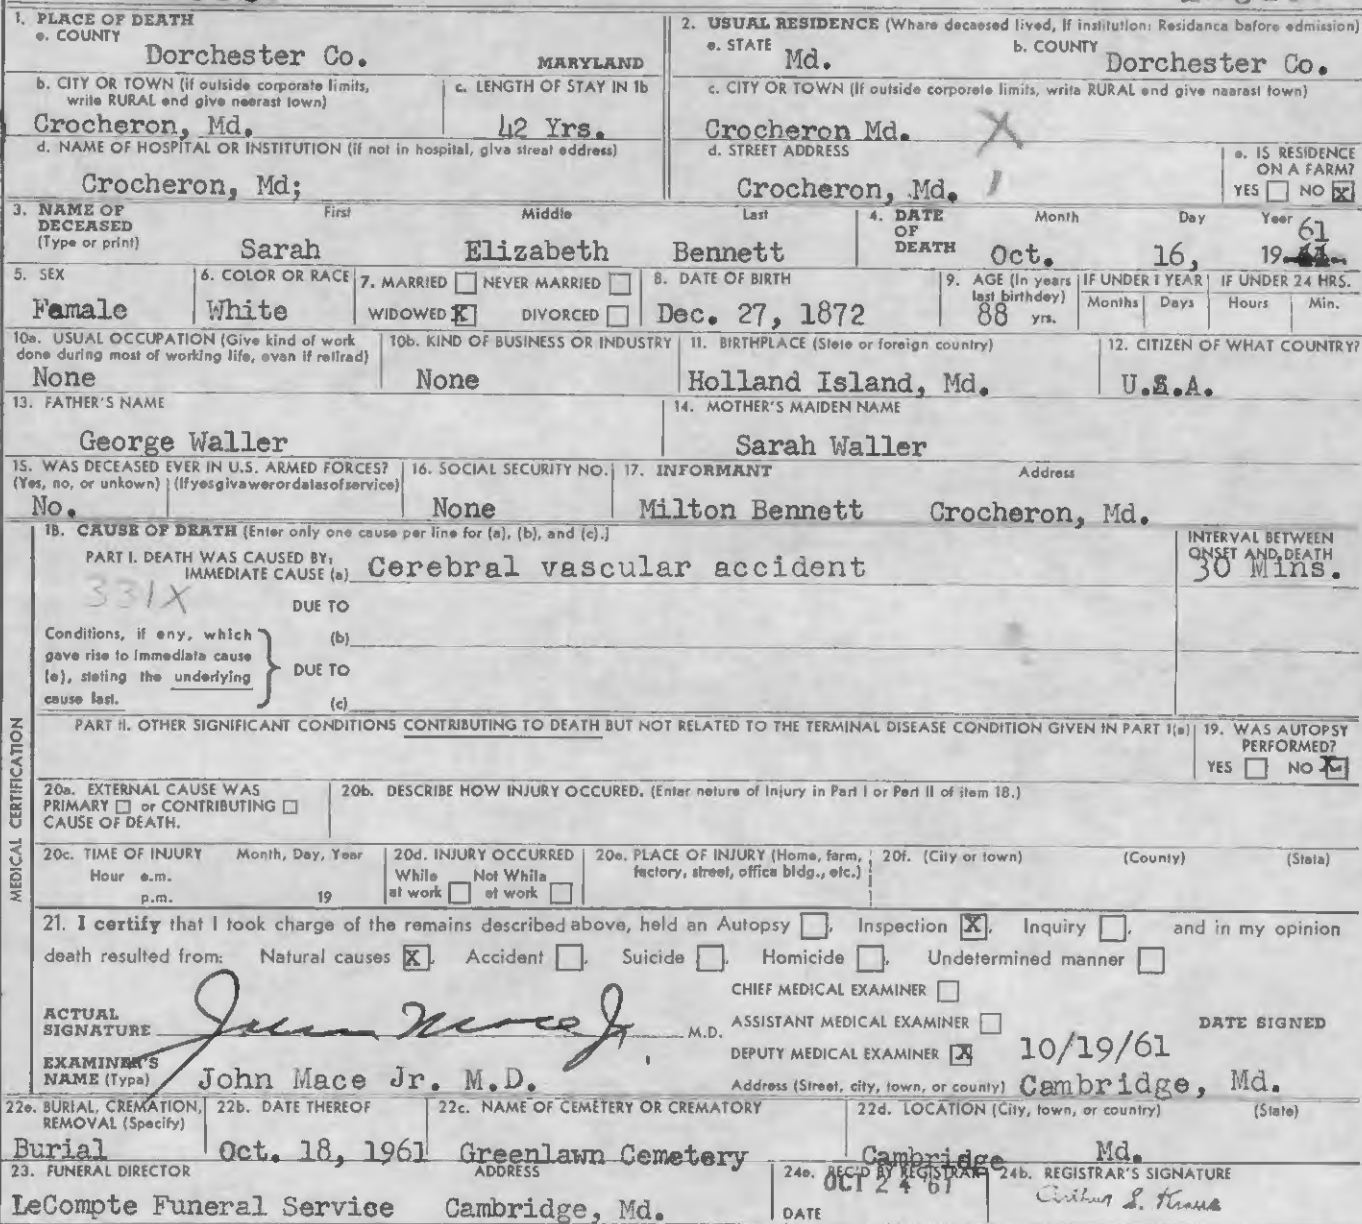 1. PLACE OF DEATH
a. COUNTY
Dorchester Co. MARYLAND
2. USUAL RESIDENCE (Where deceased lived, If institution: Residence before admission)
a. STATE Md. b. COUNTY Dorchester Co.
b. CITY OR TOWN (if outside corporate limits, write RURAL and give nearest town)
Crocheron, Md.
c. LENGTH OF STAY IN 1b
42 Yrs.
c. CITY OR TOWN (If outside corporate limits, write RURAL and give nearest town)
Crocheron Md. X
d. NAME OF HOSPITAL OR INSTITUTION (if not in hospital, give street address)
Crocheron, Md;
d. STREET ADDRESS
Crocheron, Md.
e. IS RESIDENCE ON A FARM?
YES NO X
3. NAME OF DECEASED (Type or print)
First Middle Last
Sarah Elizabeth Bennett
4. DATE OF DEATH
Month Day Year
Oct. 16, 19 61
5. SEX
Female
6. COLOR OR RACE
White
7. MARRIED NEVER MARRIED
WIDOWED X DIVORCED
8. DATE OF BIRTH
Dec. 27, 1872
9. AGE (In years last birthday)
88 yrs.
IF UNDER 1 YEAR
Months Days
IF UNDER 24 HRS.
Hours Min.
10a. USUAL OCCUPATION (Give kind of work done during most of working life, even if retired)
None
10b. KIND OF BUSINESS OR INDUSTRY
None
11. BIRTHPLACE (State or foreign country)
Holland Island, Md.
12. CITIZEN OF WHAT COUNTRY?
U.S.A.
13. FATHER'S NAME
George Waller
14. MOTHER'S MAIDEN NAME
Sarah Waller
15. WAS DECEASED EVER IN U.S. ARMED FORCES?
(Yes, no, or unkown) (Ifyesgivewerordatesofservice)
No.
16. SOCIAL SECURITY NO.
None
17. INFORMANT Address
Milton Bennett Crocheron, Md.
MEDICAL CERTIFICATION
18. CAUSE OF DEATH (Enter only one cause per line for (a), (b), and (c).)
INTERVAL BETWEEN ONSET AND DEATH
PART I. DEATH WAS CAUSED BY:
IMMEDIATE CAUSE (a) Cerebral vascular accident 30 Mins.
331X
DUE TO
Conditions, if any, which gave rise to immediate cause (a), stating the underlying cause last.
(b)
DUE TO
(c)
PART II. OTHER SIGNIFICANT CONDITIONS CONTRIBUTING TO DEATH BUT NOT RELATED TO THE TERMINAL DISEASE CONDITION GIVEN IN PART 1(a)
19. WAS AUTOPSY PERFORMED?
YES NO X
20a. EXTERNAL CAUSE WAS
PRIMARY or CONTRIBUTING
CAUSE OF DEATH.
20b. DESCRIBE HOW INJURY OCCURED. (Enter nature of Injury in Part I or Part II of item 18.)
20c. TIME OF INJURY Month, Day, Year
Hour a.m.
p.m. 19
20d. INJURY OCCURRED
While at work Not While at work
20e. PLACE OF INJURY (Home, farm, factory, street, office bldg., etc.)
20f. (City or town) (County) (State)
21. I certify that I took charge of the remains described above, held an Autopsy , Inspection X, Inquiry , and in my opinion
death resulted from: Natural causes X, Accident , Suicide , Homicide , Undetermined manner
CHIEF MEDICAL EXAMINER
ACTUAL SIGNATURE John Mace Jr. M.D.
ASSISTANT MEDICAL EXAMINER
DATE SIGNED
DEPUTY MEDICAL EXAMINER X 10/19/61
EXAMINER'S NAME (Type) John Mace Jr. M.D.
Address (Street, city, town, or county) Cambridge, Md.
22a. BURIAL, CREMATION, REMOVAL (Specify)
Burial
22b. DATE THEREOF
Oct. 18, 1961
22c. NAME OF CEMETERY OR CREMATORY
Greenlawn Cemetery
22d. LOCATION (City, town, or country) (State)
Cambridge Md.
23. FUNERAL DIRECTOR ADDRESS
LeCompte Funeral Service Cambridge, Md.
24a. REC'D BY REGISTRAR
OCT 24 61
DATE
24b. REGISTRAR'S SIGNATURE
Arthur S. Kraus